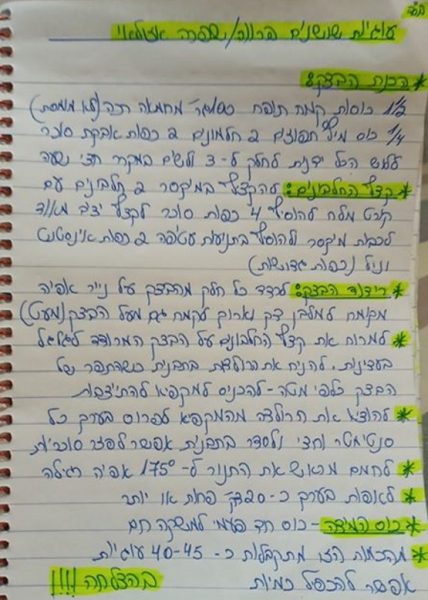 בס"ד
עוגיות שושנים פרווה/שפרה אזולאי
הכנת הבצק:
1/2 כוסות קמח תופח 200 גר' מחמאה רכה (לא מומסת)
1/4 כוס מיץ תפוזים 2 חלמונים 2 כפות אבקת סוכר
ללוש הכל ידנית לחלק ל-3 ולשים במקרר חצי שעה
* קצף החלבונים: להקציף במיקסר 2 חלבונים עם
קורט מלח להוסיף 4 כפות סוכר לקצף יציב מאוד
לכבות מיקסר ולהוסיף בתנועות עטיפה 2 כפות אינסטנט
וניל (כפות גדושות)
* רידוד הבצק: לרדד כל חלק מהבצק על נייר אפיה
מקומח למלבן דק וארוך לקמח גם מעל הבצק (מעט)
* למרוח את קצף החלבונים על הבצק המרודד לגלגל
בעדינות. להניח את הרולדות בתבנית כשהתפר של
הבצק כלפי מטה - להכניס למקפיא להתייצבות
* להוציא את הרולדה מהמקפיא לפרוס בערך כל
סנטימטר וחצי ולסדר בתבנית אפשר לפזר סוכריות
* לחמם מראש את התנור ל-175° אפיה רגילה
* לאפות בערך כ-20 דק' פחות או יותר
* כוס המידה - כוס חד פעמי למשקה חם
* מהכמות הזו מתקבלות כ- 40-45 עוגיות
אפשר להכפיל כמות
בהצלחה !!!!